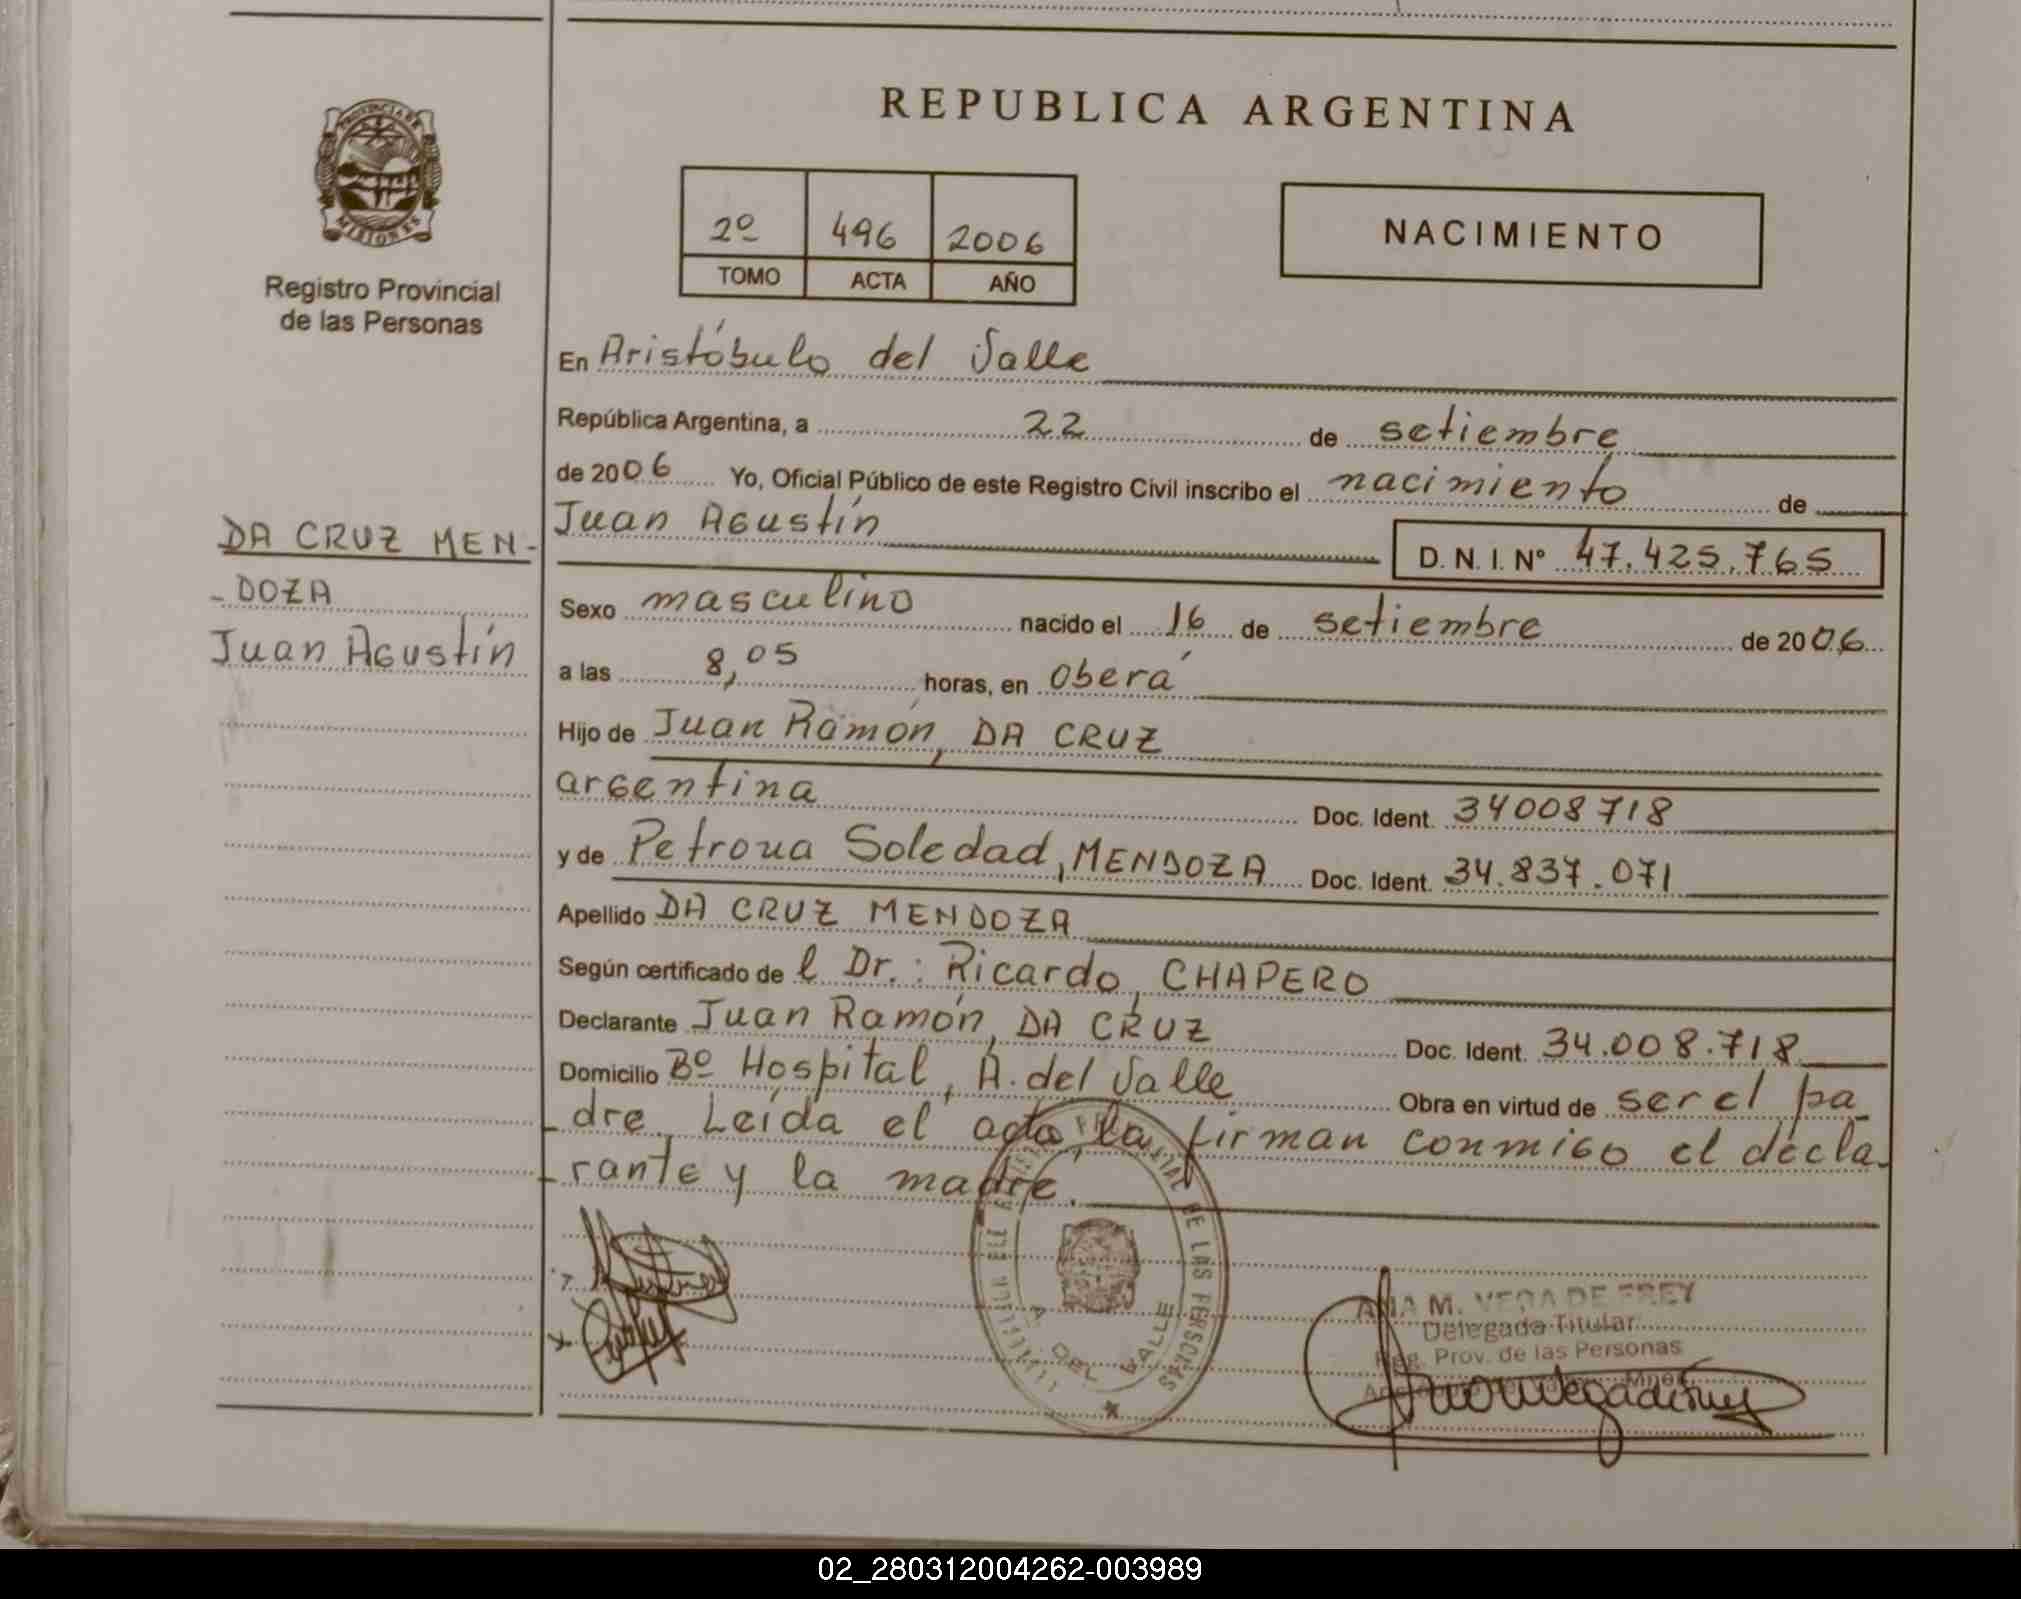 REPUBLICA ARGENTINA
PROVINCIA DE
MISIONES
Registro Provincial
de las Personas
2º 496 2006
TOMO ACTA AÑO
NACIMIENTO
En Aristóbulo del Valle
República Argentina, a 22 de setiembre
de 2006 Yo, Oficial Público de este Registro Civil inscribo el nacimiento de
DA CRUZ MEN-
-DOZA
Juan Agustín
Juan Agustín D.N.I. Nº 47.425.765
Sexo masculino nacido el 16 de setiembre de 2006
a las 8,05 horas, en Oberá
Hijo de Juan Ramón, DA CRUZ
argentina Doc. Ident. 34008718
y de Petrona Soledad, MENDOZA Doc. Ident. 34.837.071
Apellido DA CRUZ MENDOZA
Según certificado de l Dr.: Ricardo, CHAPERO
Declarante Juan Ramón, DA CRUZ Doc. Ident. 34.008.718
Domicilio Bº Hospital, A. del Valle Obra en virtud de ser el pa-
-dre. Leída el acta, la firman conmigo el decla-
-rante y la madre.
DE LAS PERSONAS
A. DEL VALLE
ANA M. VEGA DE FREY
Delegada Titular
Reg. Prov. de las Personas
02_280312004262-003989